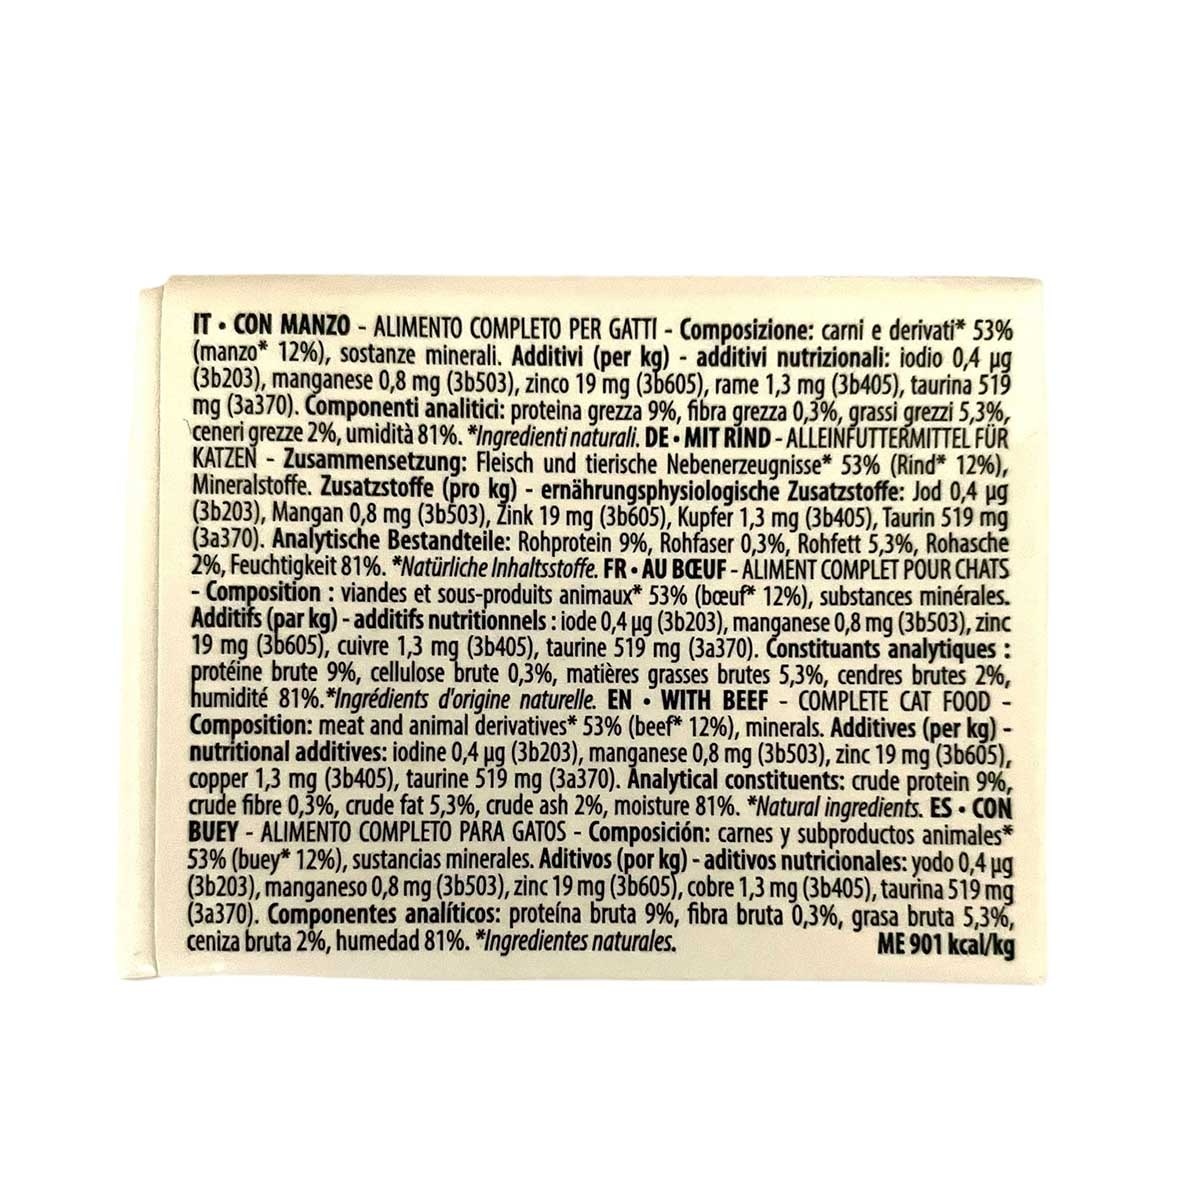 IT • CON MANZO - ALIMENTO COMPLETO PER GATTI - Composizione: carni e derivati* 53%
(manzo* 12%), sostanze minerali. Additivi (per kg) - additivi nutrizionali: iodio 0,4 µg
(3b203), manganese 0,8 mg (3b503), zinco 19 mg (3b605), rame 1,3 mg (3b405), taurina 519
mg (3a370). Componenti analitici: proteina grezza 9%, fibra grezza 0,3%, grassi grezzi 5,3%,
ceneri grezze 2%, umidità 81%. *Ingredienti naturali. DE • MIT RIND - ALLEINFUTTERMITTEL FÜR
KATZEN - Zusammensetzung: Fleisch und tierische Nebenerzeugnisse* 53% (Rind* 12%),
Mineralstoffe. Zusatzstoffe (pro kg) - ernährungsphysiologische Zusatzstoffe: Jod 0,4 µg
(3b203), Mangan 0,8 mg (3b503), Zink 19 mg (3b605), Kupfer 1,3 mg (3b405), Taurin 519 mg
(3a370). Analytische Bestandteile: Rohprotein 9%, Rohfaser 0,3%, Rohfett 5,3%, Rohasche
2%, Feuchtigkeit 81%. *Natürliche Inhaltsstoffe. FR • AU BŒUF - ALIMENT COMPLET POUR CHATS
- Composition : viandes et sous-produits animaux* 53% (bœuf* 12%), substances minérales.
Additifs (par kg) - additifs nutritionnels : iode 0,4 µg (3b203), manganese 0,8 mg (3b503), zinc
19 mg (3b605), cuivre 1,3 mg (3b405), taurine 519 mg (3a370). Constituants analytiques :
protéine brute 9%, cellulose brute 0,3%, matières grasses brutes 5,3%, cendres brutes 2%,
humidité 81%.*Ingrédients d'origine naturelle. EN • WITH BEEF - COMPLETE CAT FOOD -
Composition: meat and animal derivatives* 53% (beef* 12%), minerals. Additives (per kg) -
nutritional additives: iodine 0,4 µg (3b203), manganese 0,8 mg (3b503), zinc 19 mg (3b605),
copper 1,3 mg (3b405), taurine 519 mg (3a370). Analytical constituents: crude protein 9%,
crude fibre 0,3%, crude fat 5,3%, crude ash 2%, moisture 81%. *Natural ingredients. ES • CON
BUEY - ALIMENTO COMPLETO PARA GATOS - Composición: carnes y subproductos animales*
53% (buey* 12%), sustancias minerales. Aditivos (por kg) - aditivos nutricionales: yodo 0,4 µg
(3b203), manganeso 0,8 mg (3b503), zinc 19 mg (3b605), cobre 1,3 mg (3b405), taurina 519 mg
(3a370). Componentes analíticos: proteína bruta 9%, fibra bruta 0,3%, grasa bruta 5,3%,
ceniza bruta 2%, humedad 81%. *Ingredientes naturales. ME 901 kcal/kg